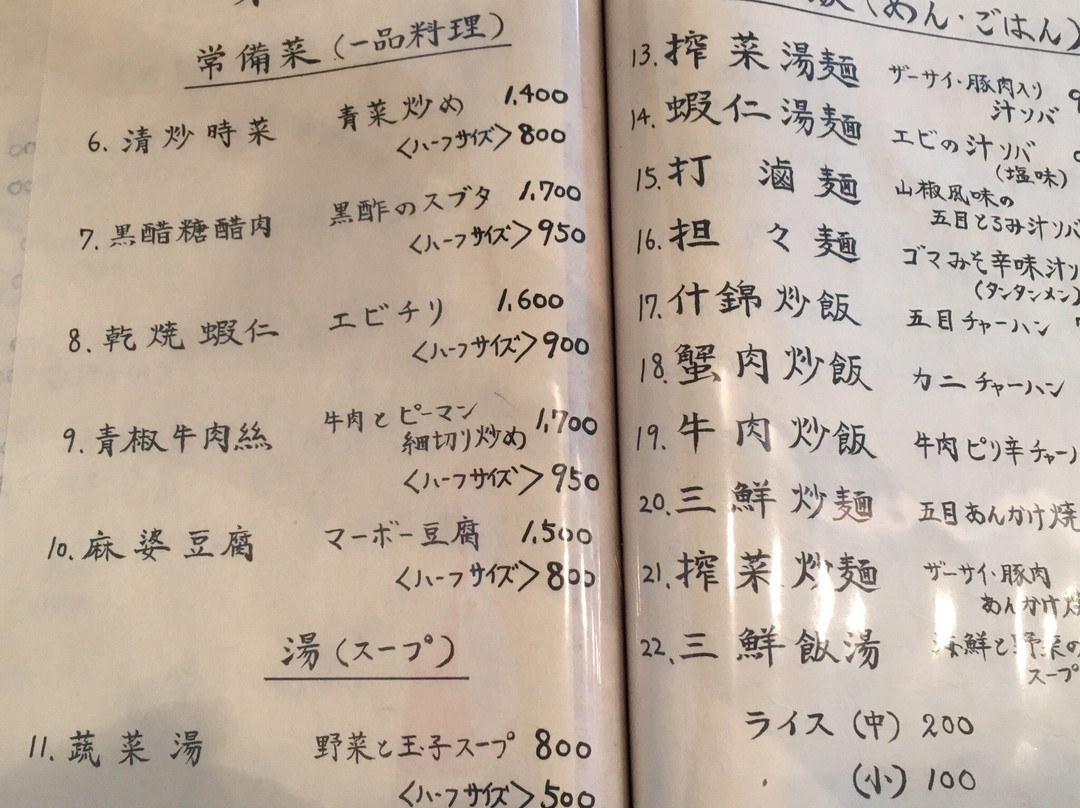 常備菜(一品料理)
6. 清炒時菜 青菜炒め 1,400
<ハーフサイズ> 800
7. 黒醋糖醋肉 黒酢のスブタ 1,700
<ハーフサイズ> 950
8. 乾焼蝦仁 エビチリ 1,600
<ハーフサイズ> 900
9. 青椒牛肉絲 牛肉とピーマン
細切り炒め 1,700
<ハーフサイズ> 950
10. 麻婆豆腐 マーボー豆腐 1,500
<ハーフサイズ> 800
湯(スープ)
11. 蔬菜湯 野菜と玉子スープ 800
<ハーフサイズ> 500
(めん・ごはん)
13. 搾菜湯麺 ザーサイ・豚肉入り
汁ソバ
14. 蝦仁湯麺 エビの汁ソバ
(塩味)
15. 打滷麺 山椒風味の
五目とろみ汁ソバ
16. 担々麺 ゴマみそ辛味汁ソ
(タンタンメン)
17. 什錦炒飯 五目チャーハン
18. 蟹肉炒飯 カニチャーハン
19. 牛肉炒飯 牛肉ピリ辛チャー
20. 三鮮炒麺 五目あんかけ焼
21. 搾菜炒麺 ザーサイ・豚肉
あんかけ焼
22. 三鮮飯湯 海鮮と野菜の
スープ
ライス(中) 200
(小) 100